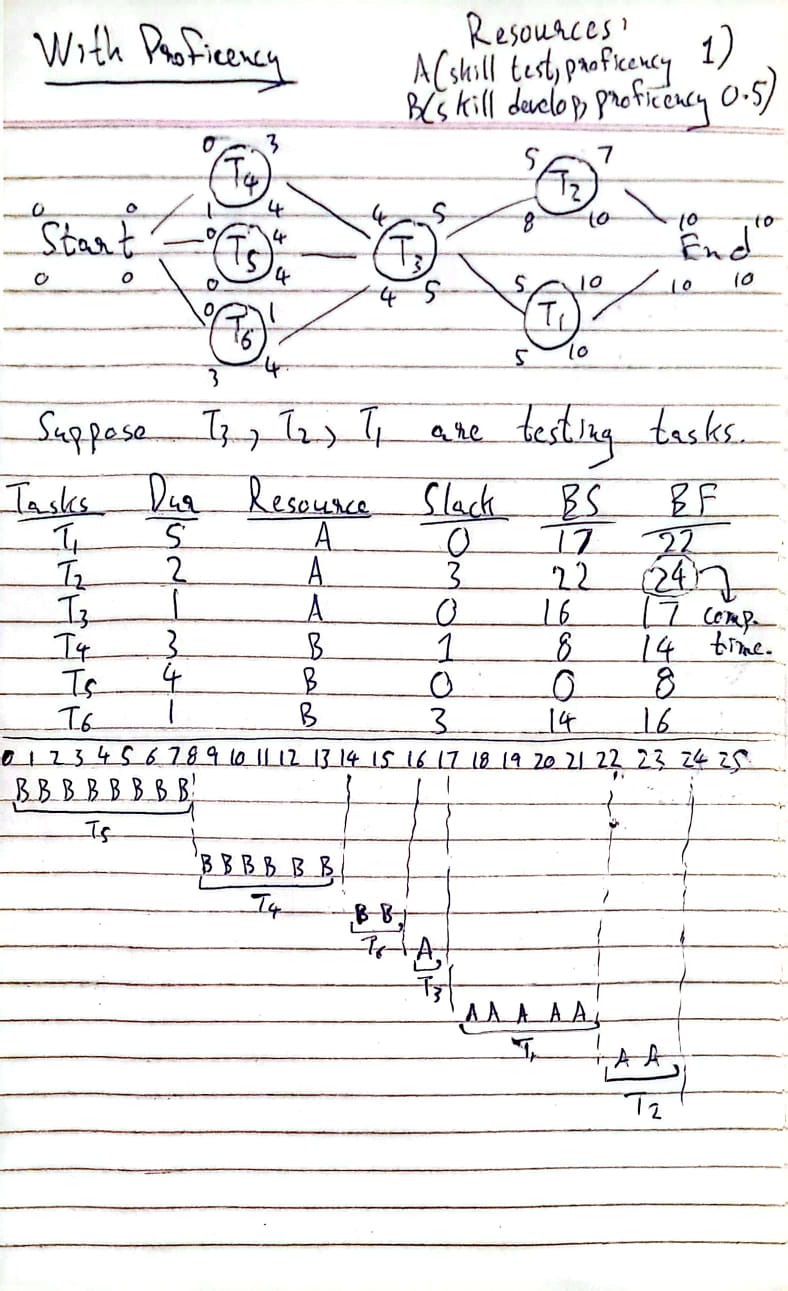 With Proficency
Resources:
A(skill test, proficency 1)
B(skill develop, proficency 0.5)
0 3
T4
1 4
0 0
Start
0 0
0 4
T5
0 4
0 1
T6
3 4
4 5
T3
4 5
5 7
T2
8 10
5 10
T1
5 10
10 10
End
10 10
Suppose T3, T2, T1 are testing tasks.
Tasks Dur Resource Slack BS BF
T1 5 A 0 17 22
T2 2 A 3 22 24
T3 1 A 0 16 17 comp.
T4 3 B 1 8 14 time.
T5 4 B 0 0 8
T6 1 B 3 14 16
0 1 2 3 4 5 6 7 8 9 10 11 12 13 14 15 16 17 18 19 20 21 22 23 24 25
B B B B B B B B
T5
B B B B B B
T4
B B
T6 A
T3
A A A A A
T1
A A
T2